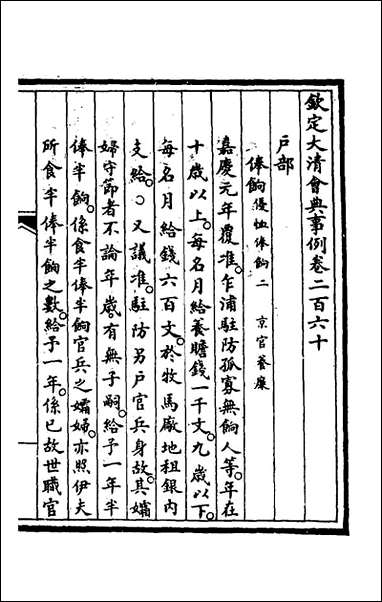 欽定大清會典事例卷二百六十
戶部
俸餉優恤俸餉二　京官養廉
嘉慶元年覆准乍浦駐防孤寡無餉人等年在
十歲以上每名月給養贍錢一千文九歲以下
每名月給錢六百文於牧馬廠地租銀內
支給○又議准駐防另戶官兵身故其孀
婦守節者不論年歲有無子嗣給予一年半
俸半餉係食半俸半餉官兵之孀婦亦照伊夫
所食半俸半餉之數給予一年係已故世職官